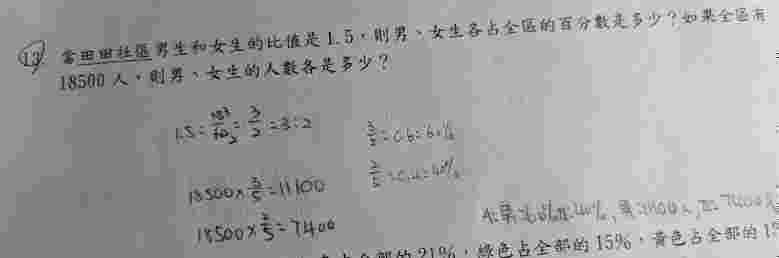 13. 當田田社區男生和女生的比值是1.5,則男、女生各占全區的百分數是多少?如果全區有
18500人,則男、女生的人數各是多少?
1.5=15/10=3/2=3:2
3/5=0.6=60%
2/5=0.4=40%
18500×3/5=11100
18500×2/5=7400
A:男:60%女:40%,男:11100人,女:7400人
全部的21%,綠色占全部的15%,黃色占全部的1